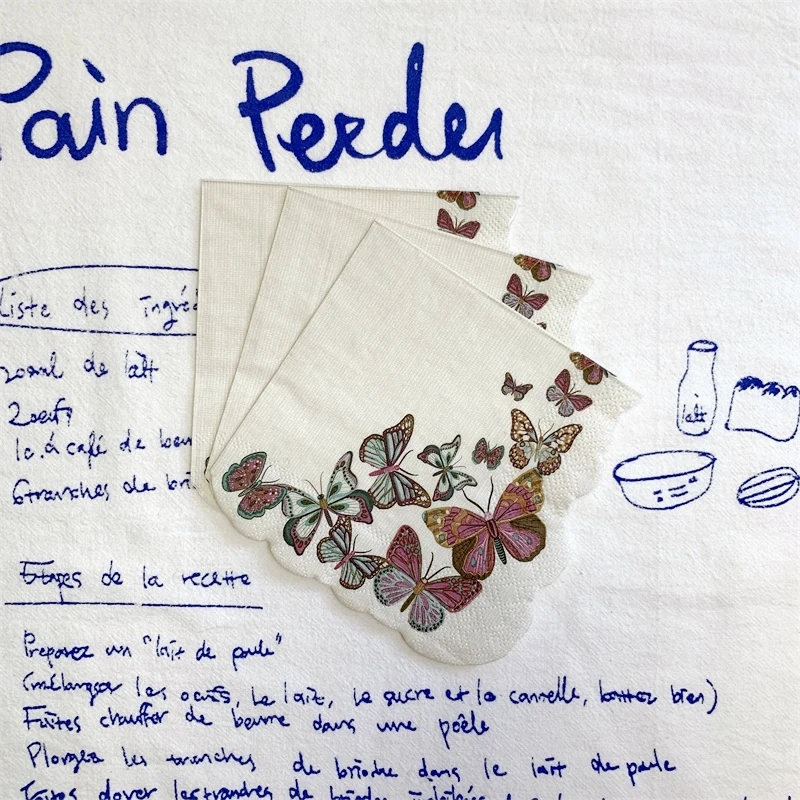 Pain Perdu
Liste des ingréd
200ml de lait
2 oeufs
1c. à café de beu
6 tranches de bri
lait
Etapes de la recette
Preparez un "lait de poule"
(mélanger les oeufs, le lait, le sucre et la cannelle, battez bien)
Faites chauffer de beurre dans une poêle
Plongez les tranches de brioche dans le lait de poule
Faites dorer les tranches de brioche